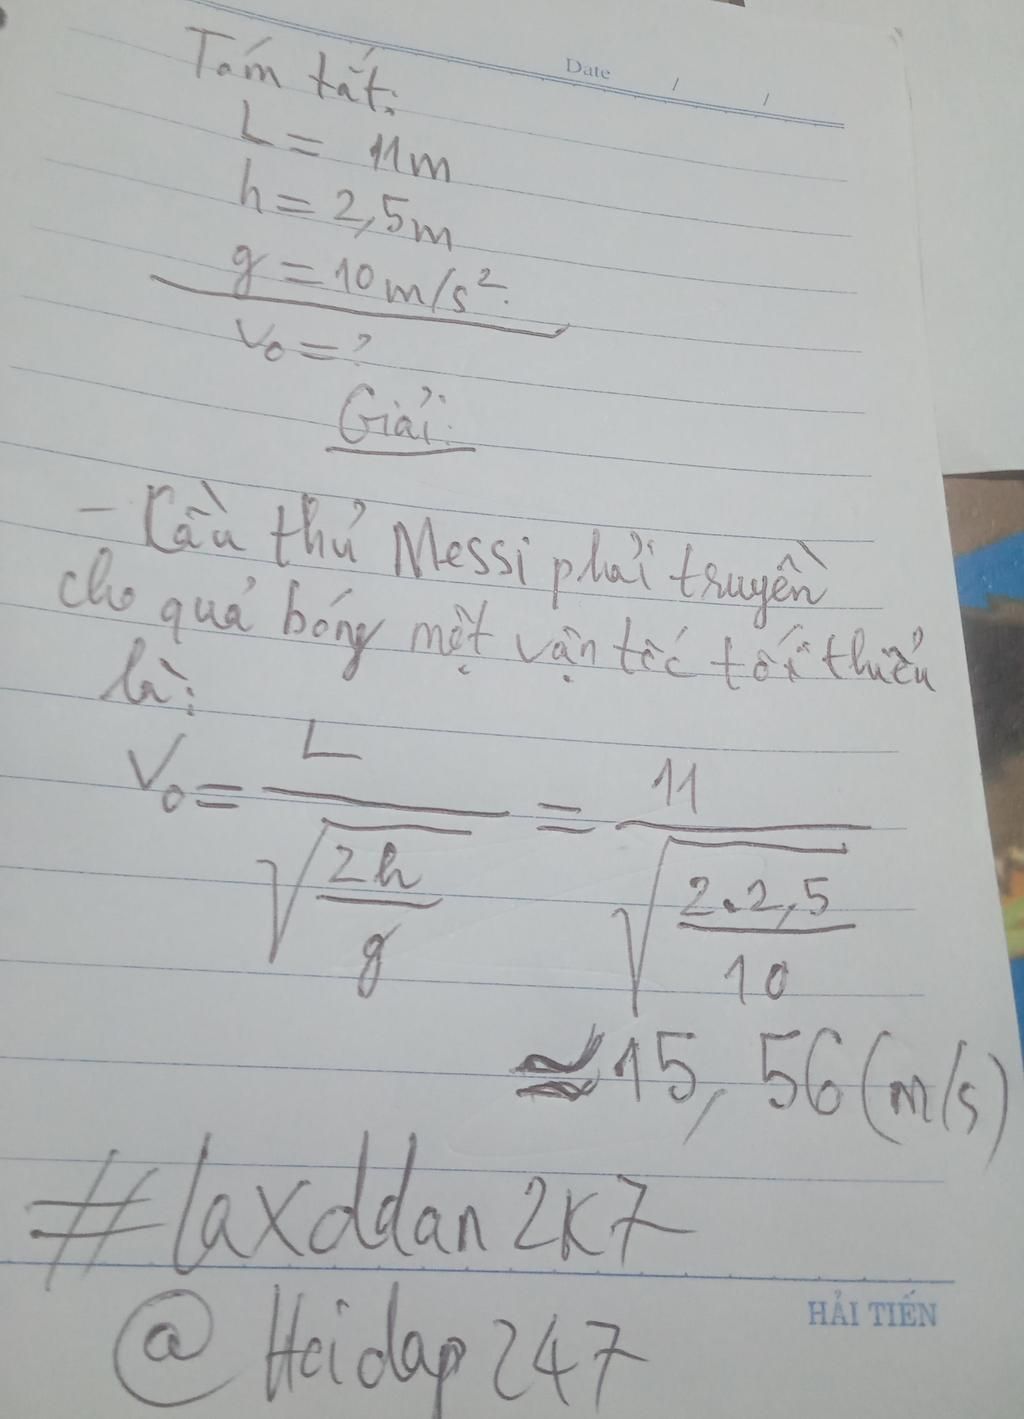 Date / /
Tóm tắt:
L = 11m
h = 2,5m
g = 10m/s².
V₀ = ?
Giải:
- Cầu thủ Messi phải truyền
cho quả bóng một vận tốc tối thiểu
là:
V₀ = L / √(2h / g) = 11 / √(2.2,5 / 10)
≃ 15,56 (m/s)
#laxddan2k7
@Hoidap247
HẢI TIẾN